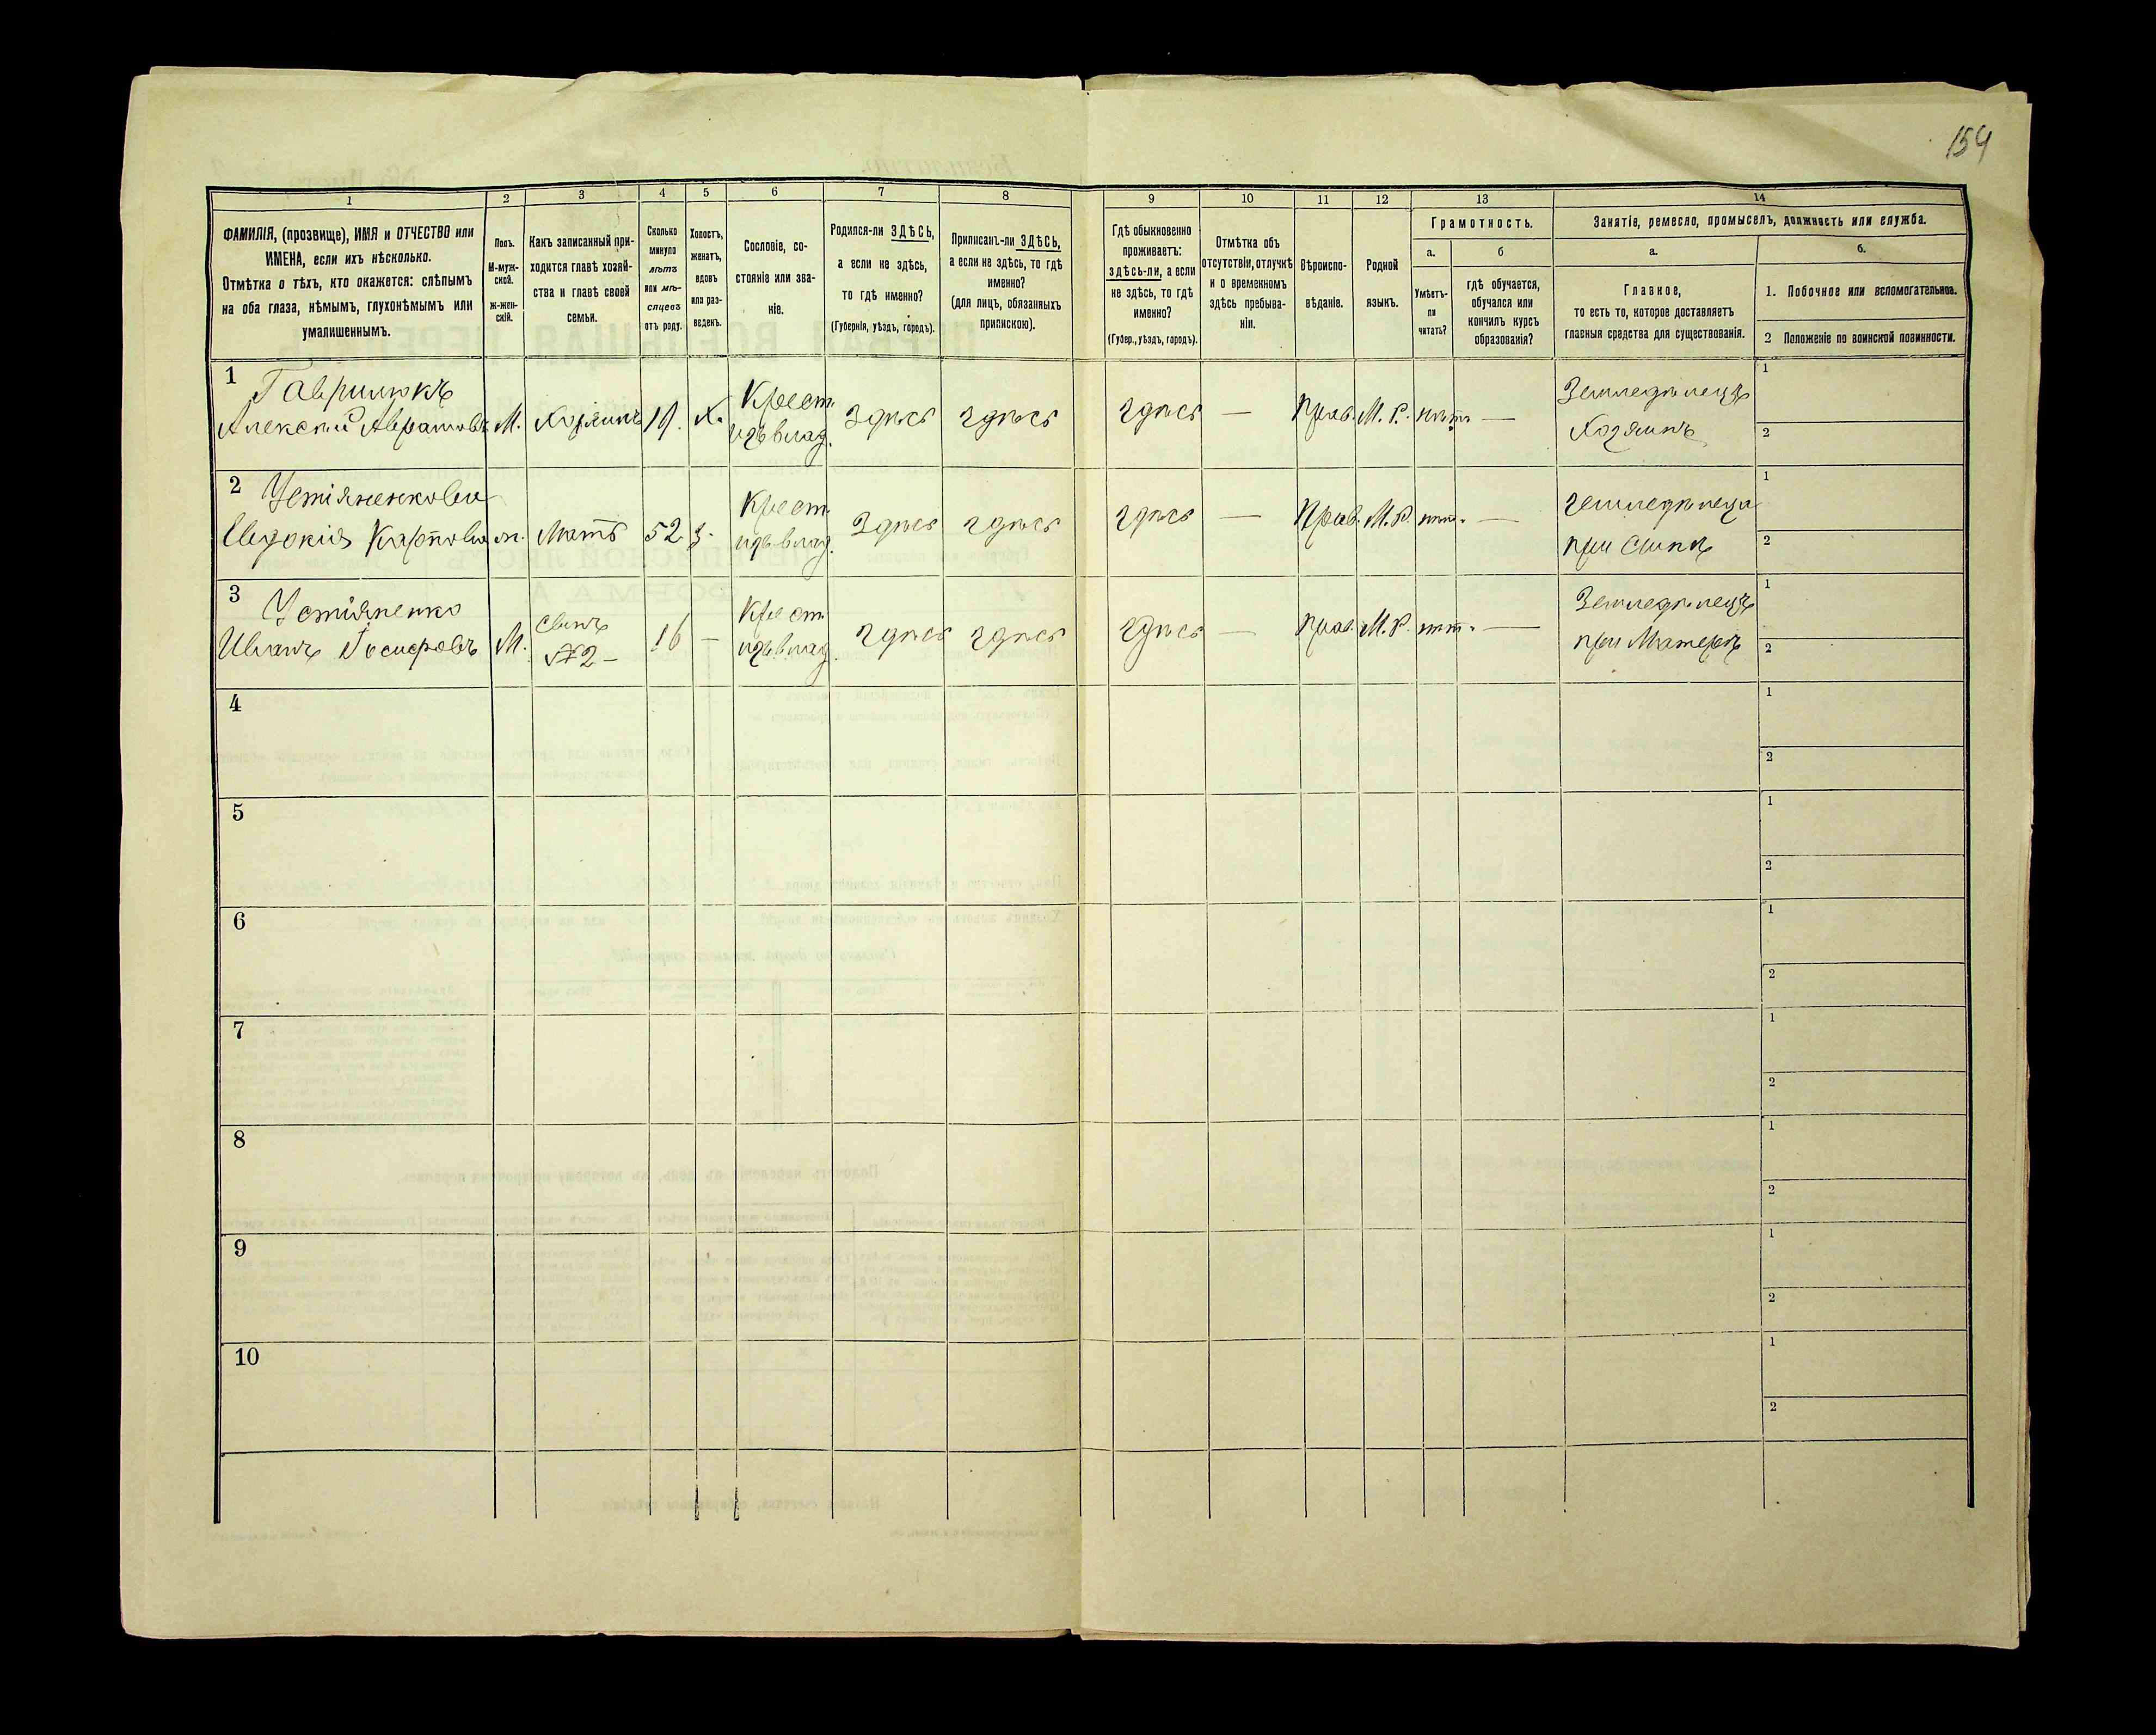 154
1 2 3 4 5 6 7 8 9 10 11 12 13 14
ФАМИЛІЯ, (прозвище), ИМЯ и ОТЧЕСТВО или
ИМЕНА, если ихъ нѣсколько.
Отмѣтка о тѣхъ, кто окажется: слѣпымъ
на оба глаза, нѣмымъ, глухонѣмымъ или
умалишеннымъ.
Полъ.
М-муж-
ской.
ж-жен-
скій.
Какъ записанный при-
ходится главѣ хозяй-
ства и главѣ своей
семьи.
Сколько
минуло
лѣтъ
или мѣ-
сяцевъ
отъ роду.
Холостъ,
женатъ,
вдовъ
или раз-
веденъ.
Сословіе, со-
стояніе или зва-
ніе.
Родился-ли ЗДѢСЬ,
а если не здѣсь,
то гдѣ именно?
(Губернія, уѣздъ, городъ).
Приписанъ-ли ЗДѢСЬ,
а если не здѣсь, то гдѣ
именно?
(для лицъ, обязанныхъ
припискою).
Гдѣ обыкновенно
проживаетъ:
здѣсь-ли, а если
не здѣсь, то гдѣ
именно?
(Губер., уѣздъ, городъ).
Отмѣтка объ
отсутствіи, отлучкѣ
и о временномъ
здѣсь пребыва-
ніи.
Вѣроиспо-
вѣданіе.
Родной
языкъ.
Грамотность.
а.
Умѣетъ-
ли
читать?
б
гдѣ обучается,
обучался или
кончилъ курсъ
образованія?
Занятіе, ремесло, промыселъ, должность или служба.
а.
Главное,
то есть то, которое доставляетъ
главныя средства для существованія.
б.
1. Побочное или вспомогательное.
2 Положеніе по воинской повинности.
1 Гаврилюкъ
Алексѣй Аврамовъ М. Хозяинъ 19. Х. Крест. изъ влад. здѣсь здѣсь здѣсь — Прав. М. Р. нѣтъ. — Земледѣлецъ
Хозяинъ
1
2
2 Устіяненкова
Евдокія Карпова ж. Мать 52 В. Крест. изъ влад. здѣсь здѣсь здѣсь — Прав. М. Р. нѣт. — земледѣлеца
при Сынѣ
1
2
3 Устіяненко
Иванъ М. Сынъ
№ 2 – 16 — Крест. изъ влад. здѣсь здѣсь здѣсь — Прав. М. Р. нѣт. — Земледѣлецъ
при Матерѣ
1
2
4
1
2
5
1
2
6
1
2
7
1
2
8
1
2
9
1
2
10
1
2